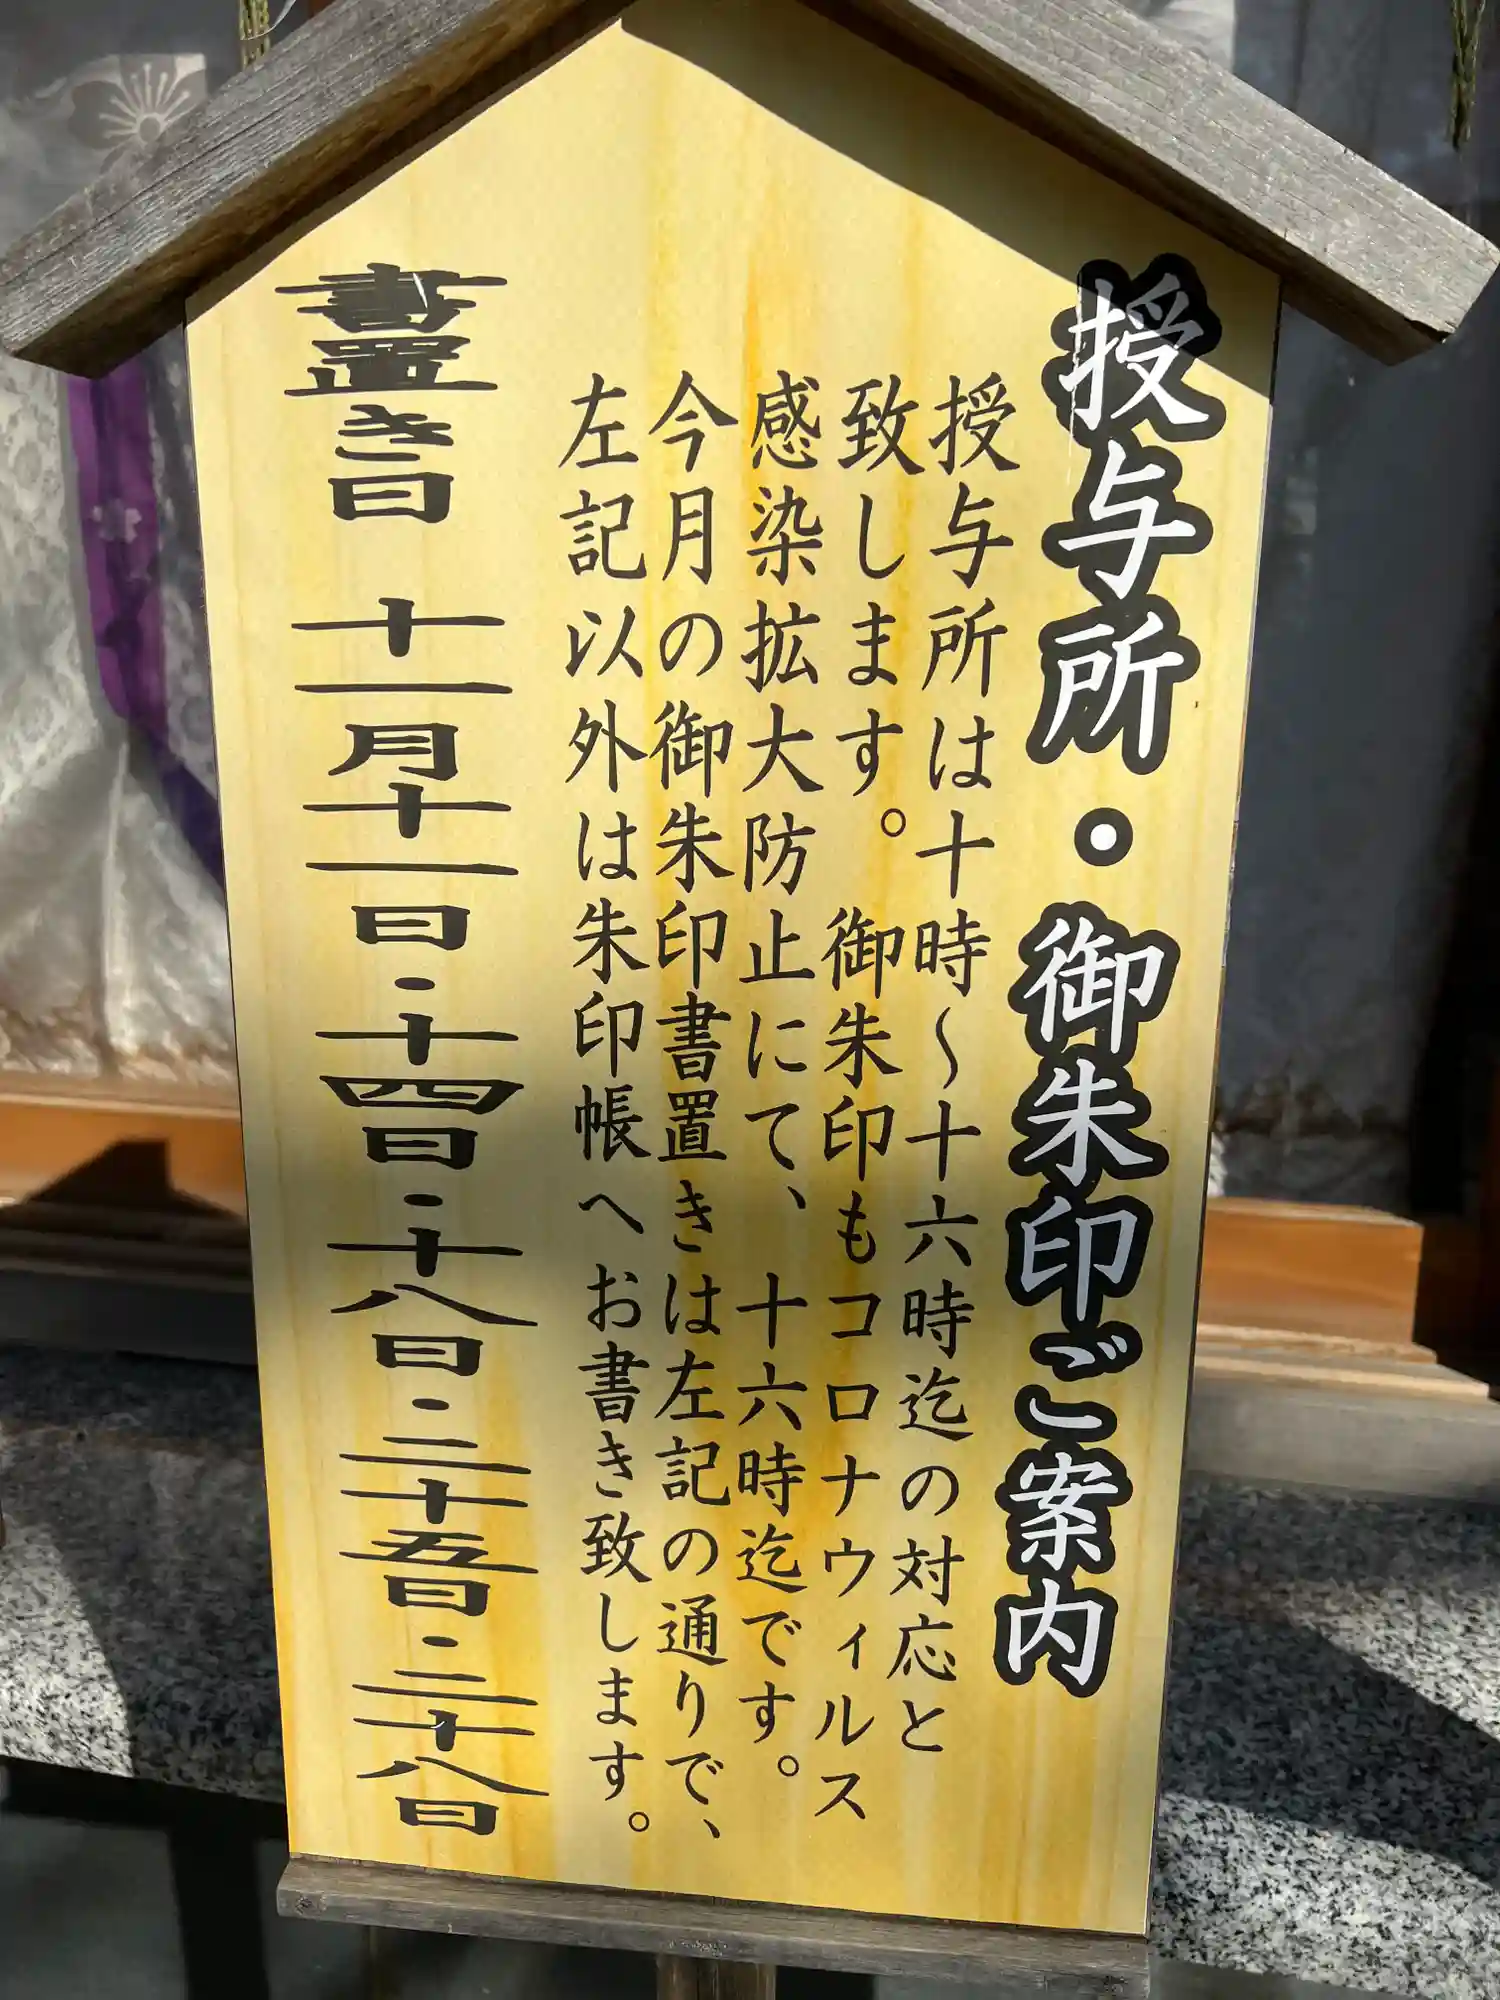 授与所・御朱印ご案内
授与所は十時～十六時迄の対応と
致します。　御朱印もコロナウィルス
感染拡大防止にて、十六時迄です。
今月の御朱印書置きは左記の通りで、
左記以外は朱印帳へお書き致します。
書置き日　十一月十一日・十四日・十八日・二十五日・二十八日